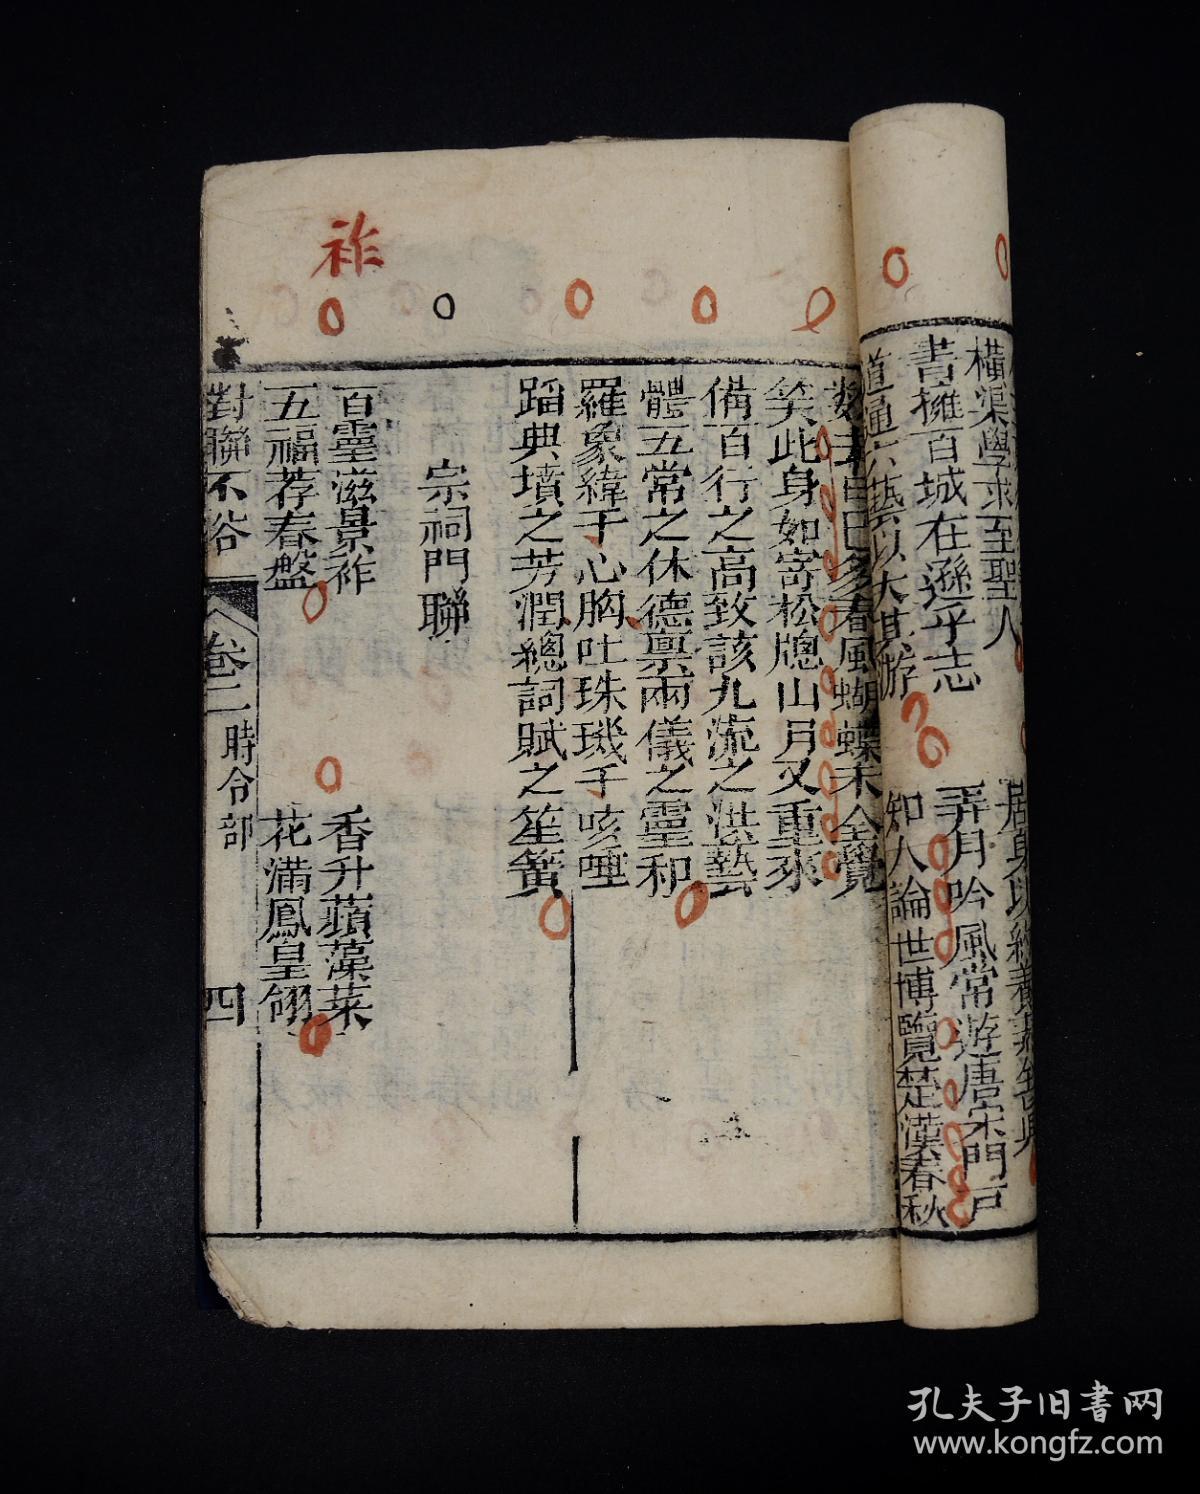 橫渠學求至聖人
書擁百城在遜乎志
弄月吟風常遊唐宋門戶
道通六藝以大其游
知人論世博覽楚漢春秋
春風蝴蝶未全覺
笑此身如寄松牕山月又重來
備百行之高致該九流之洪藝
體五常之休德禀兩儀之靈和
羅象緯于心胸吐珠璣于咳唾
蹈典墳之芳潤總詞賦之笙簧
宗祠門聯
祚
百靈滋景祚
香升蘋藻菜
五福荐春盤
花滿鳳皇翎
對聯不俗
卷二
時令部
四
孔夫子旧书网
www.kongfz.com